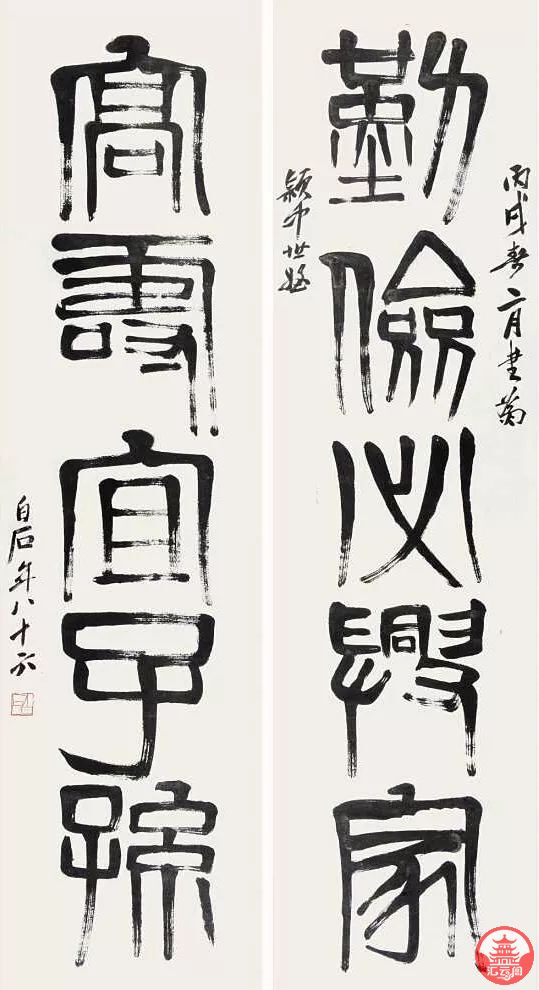 丙戌春二月書
勤儉必興家
穎中世
高壽宜子孫
白石年八十六